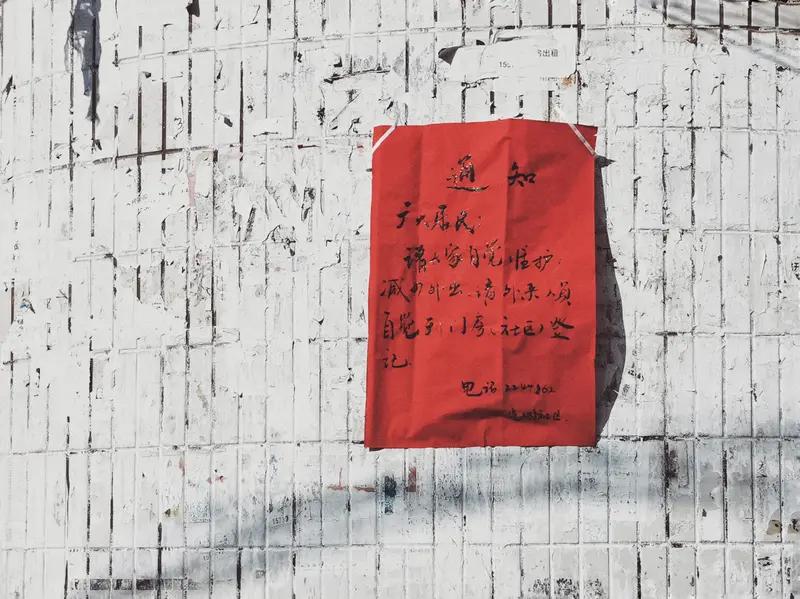 出租
通知
广大居民:
请大家自觉维护,
减少外出、请外来人员
自觉到门房(社区)登
记.
电话 2247862